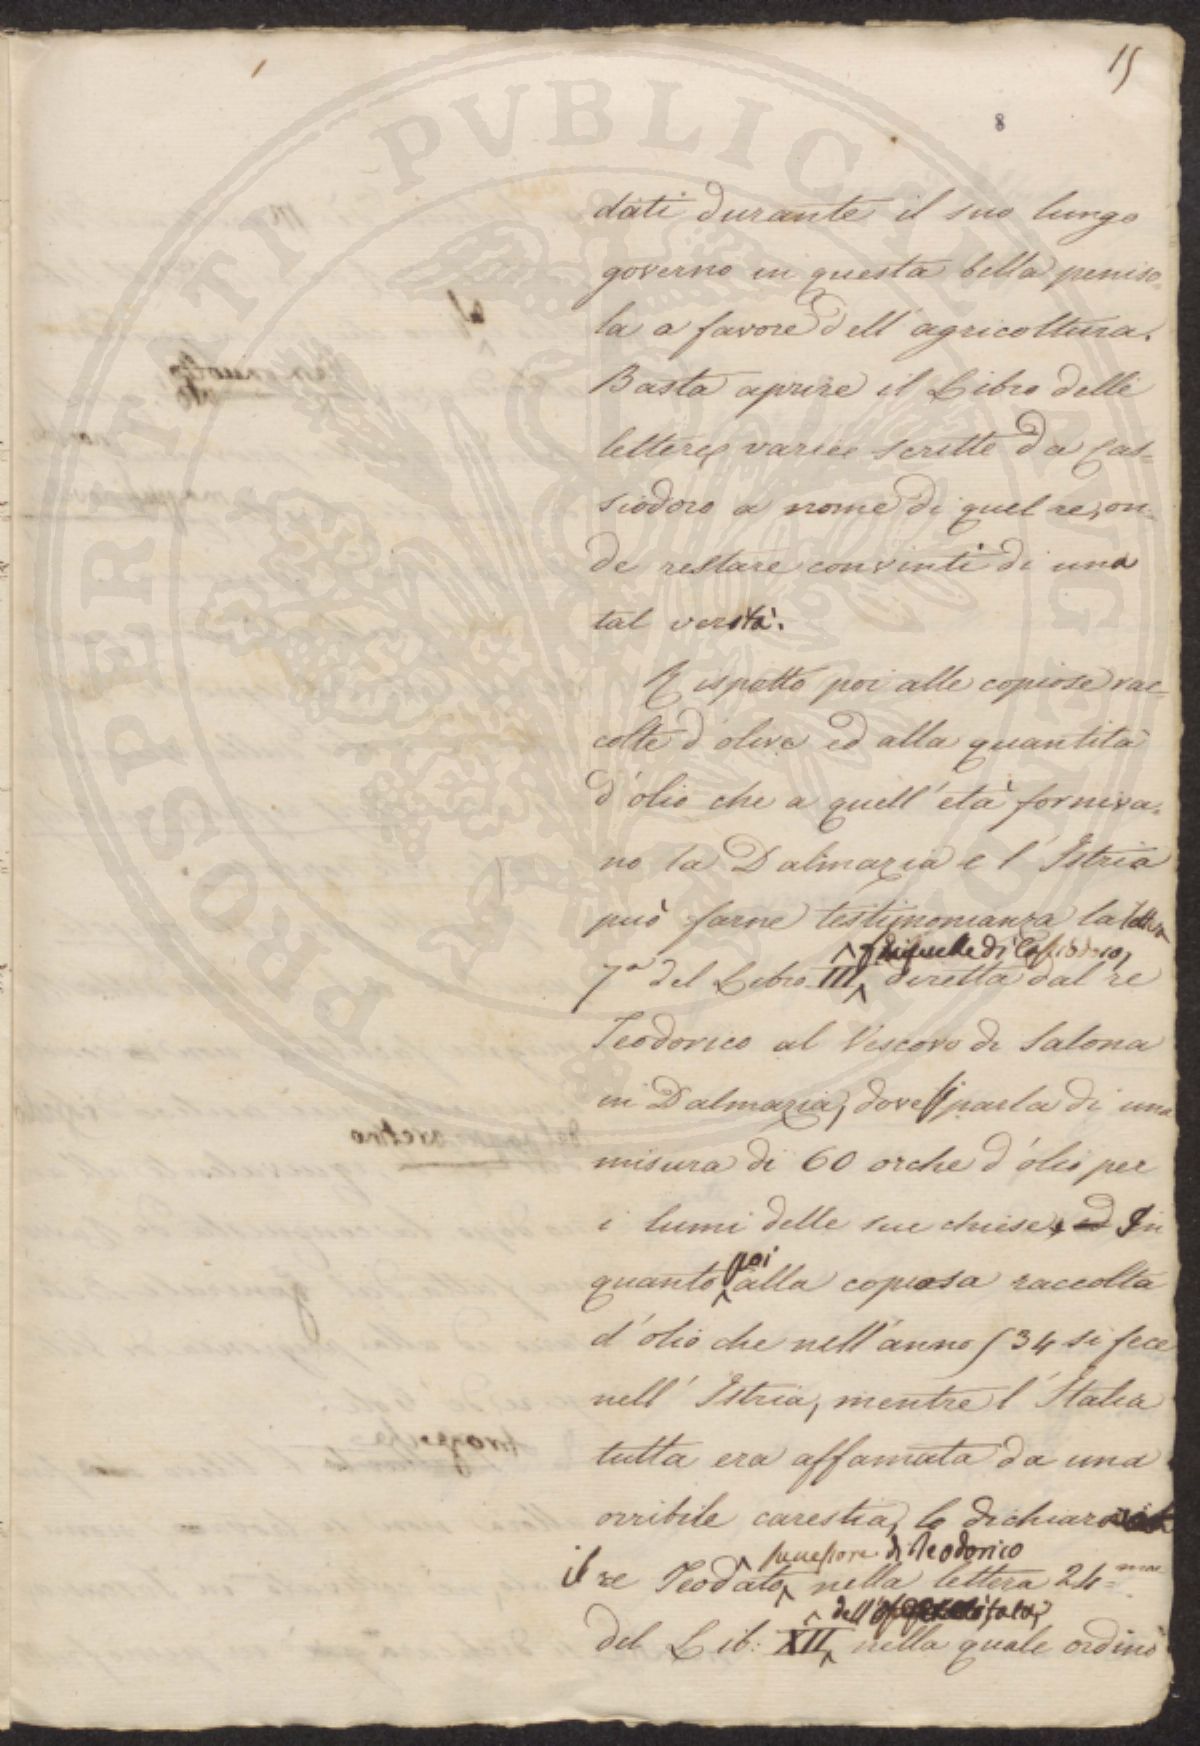 15
8
dati durante il suo lungo
governo in questa bella peniso=
la a favore dell'agricoltura.
Basta aprire il Libro delle
lettere varie scritte da Cas=
siodoro a nome di quel re, on=
de restare convinti di una
tal verità.
Rispetto poi alle copiose rac=
colte d'olive ed alla quantità
d'olio che a quell'età forniva=
no la Dalmazia e l'Istria
può farne testimonianza la lettera
di Cassiodoro,
7a del Libro III, diretta dal re
Teodorico al Vescovo di Salona
in Dalmazia, dove si parla di una
misura di 60 orche d'olio per
i lumi delle sue chiese, ed In
poi
quanto alla copiosa raccolta
d'olio che nell'anno 534 si fece
nell'Istria, mentre l'Italia
tutta era affamata da una
orribile carestia, lo dichiarò
successore di Teodorico
il re Teodato, nella lettera 24=ma
dell'
del Lib: XII, nella quale ordinò
PROSPERITATI PVBLICAE